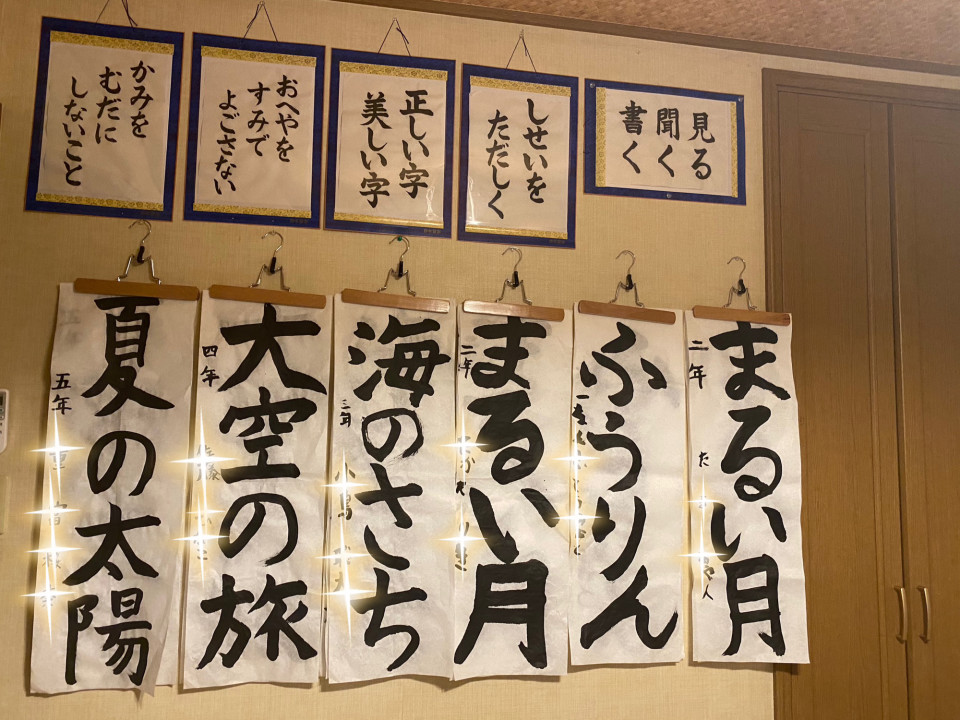 見る
聞く
書く
しせいを
ただしく
正しい字
美しい字
おへやを
すみで
よごさない
かみを
むだに
しないこと
まるい月
二年
ふうりん
まるい月
二年
海のさち
三年
大空の旅
四年
夏の太陽
五年